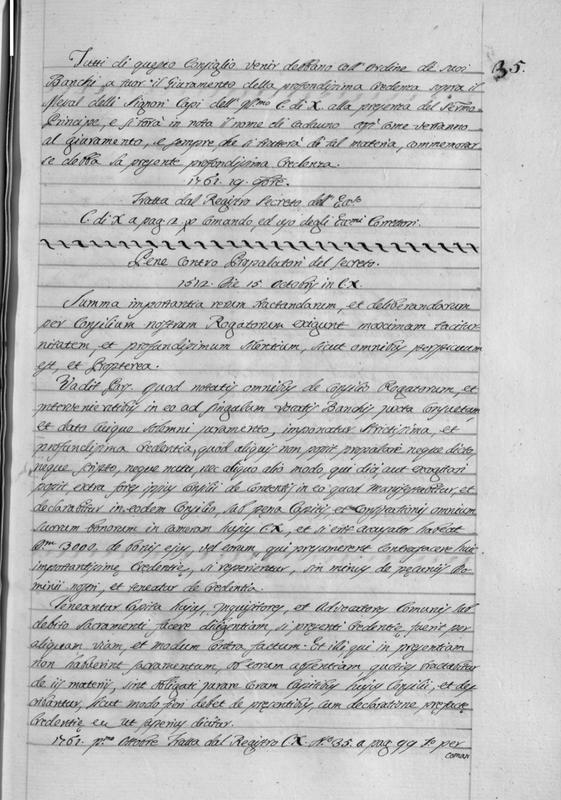 35.
Tutti di questo Consiglio venir debbano coll' ordine de suoi
Banchi a tuor il Giuramento della profondissima credenza sopra il
Messal delli Signori Capi dell' C. di X. alla presenza del Sermo
Principe, e si torà in nota il nome di cadauno così come veranno
al giuramento, e sempre che si tratterà di tal materia, commemorar
se debba la presente profondissima Credenza.
1761. 19. 9bre.
Tratta dal Registro Secreto dell' Ecclso
C. di X a pag. 2 p comando, ed uso degli Ecc.mi Corretori.
Pene Contro Propalatori del Secreto.
1512. Die 15. Octobris in C X.
Summa importantia rerum tractandarum, et deliberandarum
per Consilium nostrum Rogatorum exigunt maximam tacitur
nitatem, et profundissimum silentium, sicut omnibus perspicuum
est, et Propterea.
Vadit Pars. quod notatis omnibus de Consilio Rogatorum, et
intervenientibus in eo ad singulam vocatis Banchis juxta consuetum
et dato cuique solemni juramento, imponatur strictissima, et
profundissima Credentia, quod aliquis non possit propalare neque dicto,
neque scripto, neque nutu, nec aliquo alio modo, qui dici, aut excogitari
possit extra fores ipsius Consilii de contentis in eo quod manifestabitur, et
declarabitur in eodem Consilio, sub pena Capitis et confiscationis omnium
suorum bonorum in cameram hujus C X, et si erit accusator habeat
D.mi 3000. de bonis ejus, vel eorum, qui presumerent contrafacere huic
importantissime Credentie, si reperientur, sin minus de pecuniis Do
minii nostri, et teneatur de Credentia.
Teneantur Capita hujus, Inquisitores, et Advocatores Comunis sub
debito Sacramenti facere diligentiam, si presenti Credentie, fuerit per
aliquam viam, et modum contra factum. Et illi qui in presentiam
non habuerint sacramentum, ob eorum absentiam quoties tractabitur
de iis materiis, sint obligati jurare coram Capitibus hujus Consilii, et des
cribantur, sicut modo fieri debet de presentibus, cum declaratione prefacte
Credentie eis ut superius dicitur.
1761. p.mo Ottobre Tratta dal Registro C X. N.o 35. a pag 99 t.o per
coman